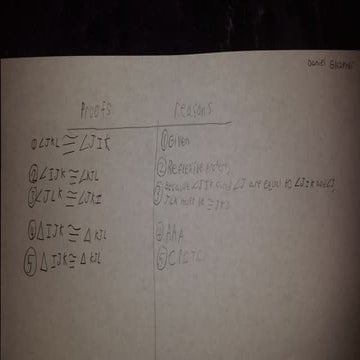 Daniel
Proofs reasons
① ∠JKL ≅ ∠JIK ① Given
② ∠IJK ≅ ∠KJL ② Reflexive
③ ∠JLK ≅ ∠JKI ③ Because ∠JIK and ∠J are equal to ∠JIK and ∠J,
JLK must be ≅ JKI
④ △IJK ≅ △KJL ④ AAA
⑤ △IJK ≅ △KJL ⑤ CPCTC